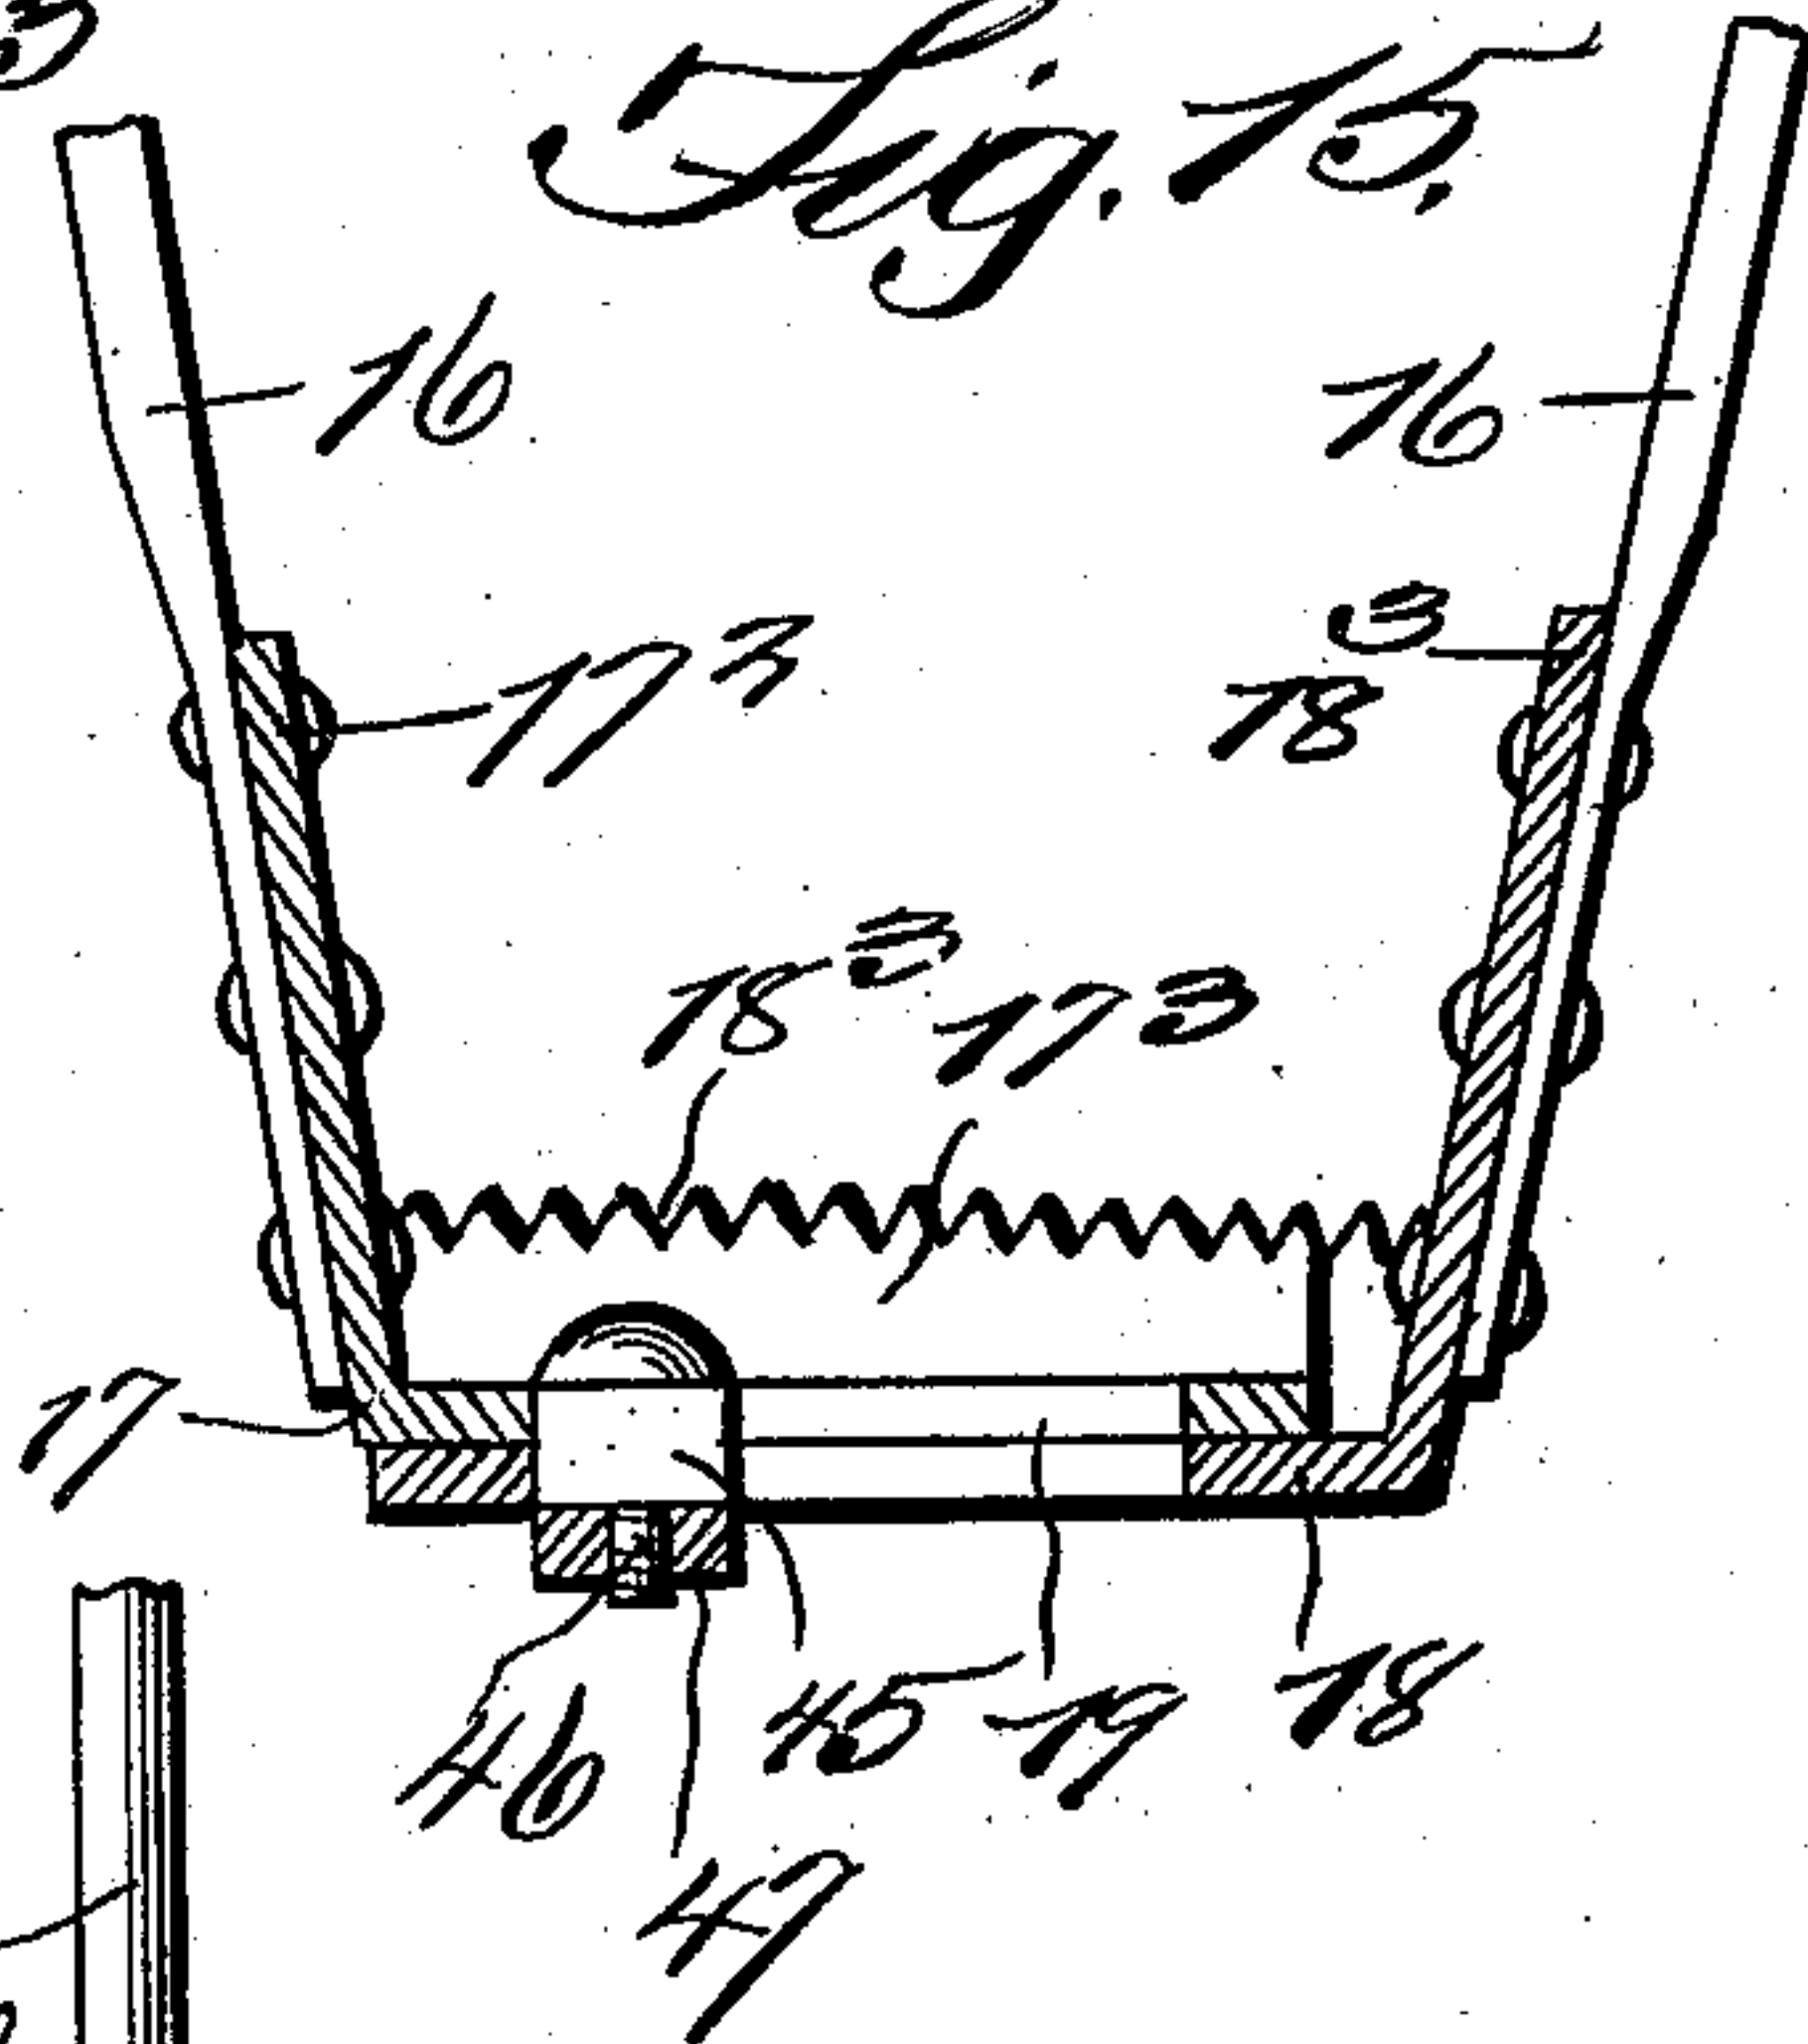 Fig. 15,
16 16
17² 18³
18³ 17³
17
46 45 19 18
47